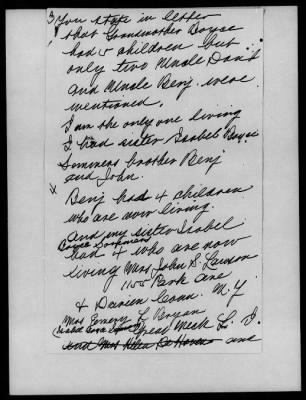 3/ You state in letter
that Grandmother Boyce
had 5 children but
only two Uncle Dan'l
and Uncle Benj. were
mentioned.
I am the only one living
I had sister Isabel Boyce
Simmons brother Benj
and John.
x Benj had 4 children
who are now living.
And my sister Isabel
Boyce
had 4 who are now
living Mrs John S. Lawson
1155 Park Ave
& Darien Conn. N.Y.
Mrs Emery L Bryan
Great Neck L. I.
and Mrs Helen De Haven and